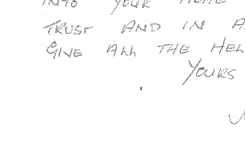 INTO YOUR HOME
TRUST AND IN A
GIVE All THE HEL
YOURS